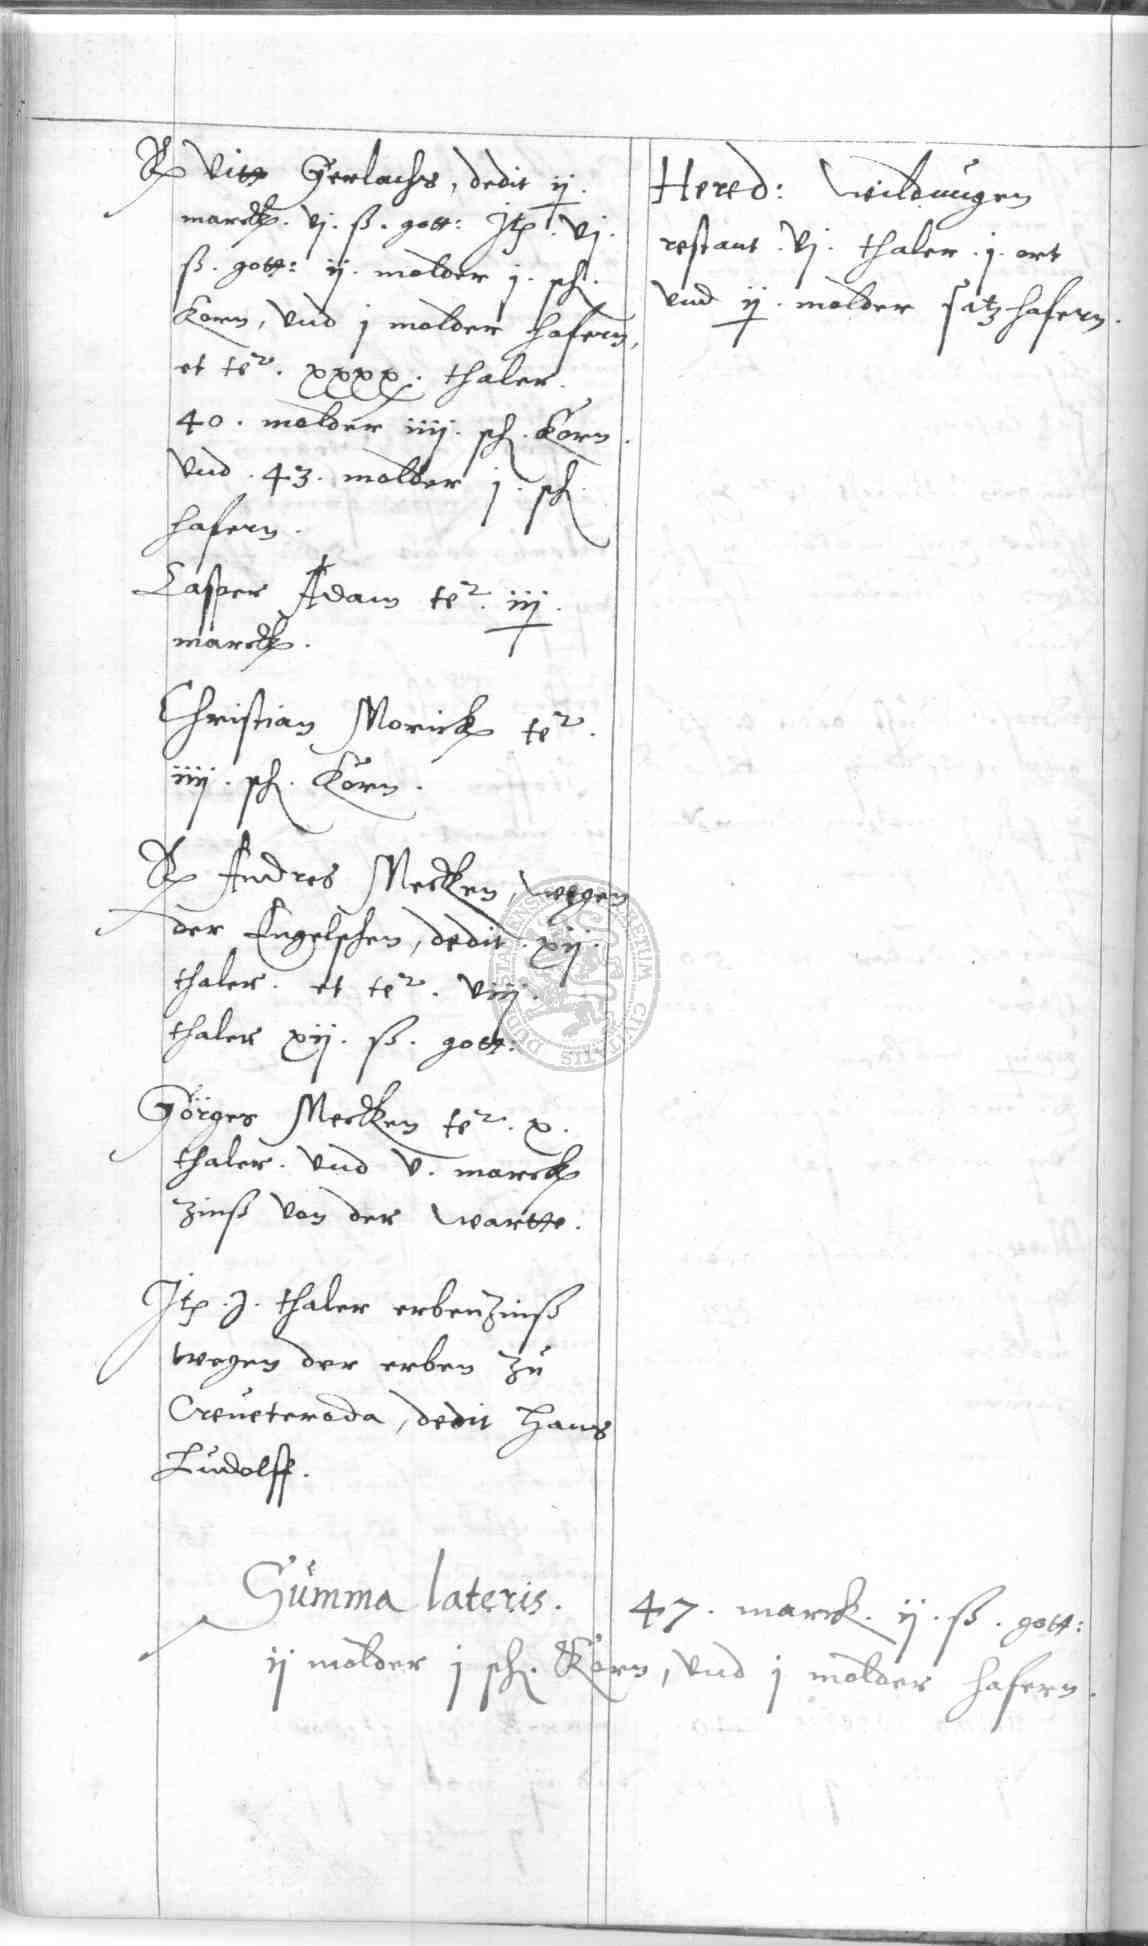 Rx Vitt Gerlachs, dedit ij.
marck. vj. ß. gott: Jtem. vj.
ß. gott: ij. molder j. sch.
Korn, vnd j molder hafern,
et tenetur. xxxx. thaler.
40. molder iiij. sch. Korn.
vnd. 43. molder j. sch.
hafern.
Casper Adam tenetur. iij.
marck.
Christian Morick tenetur.
iiij. sch. Korn.
Rx Andres Mecken, wegen
der Engelschen, dedit. xij.
thaler. et tenetur. viij.
thaler xij. ß. gott:
Görges Mecken tenetur. x.
thaler. vnd v. marck
zinß von der wartte.
Jtem. j. thaler erbenzinß
wegen der erben zu
Creueteroda, dedit Hans
Ludolff.
Hered: Wildungen
restant. vj. thaler. j. ort
vnd ij. molder satzhafern.
Summa lateris. 47. marck. ij. ß. gott:
ij molder j sch. Korn, vnd j molder hafern.